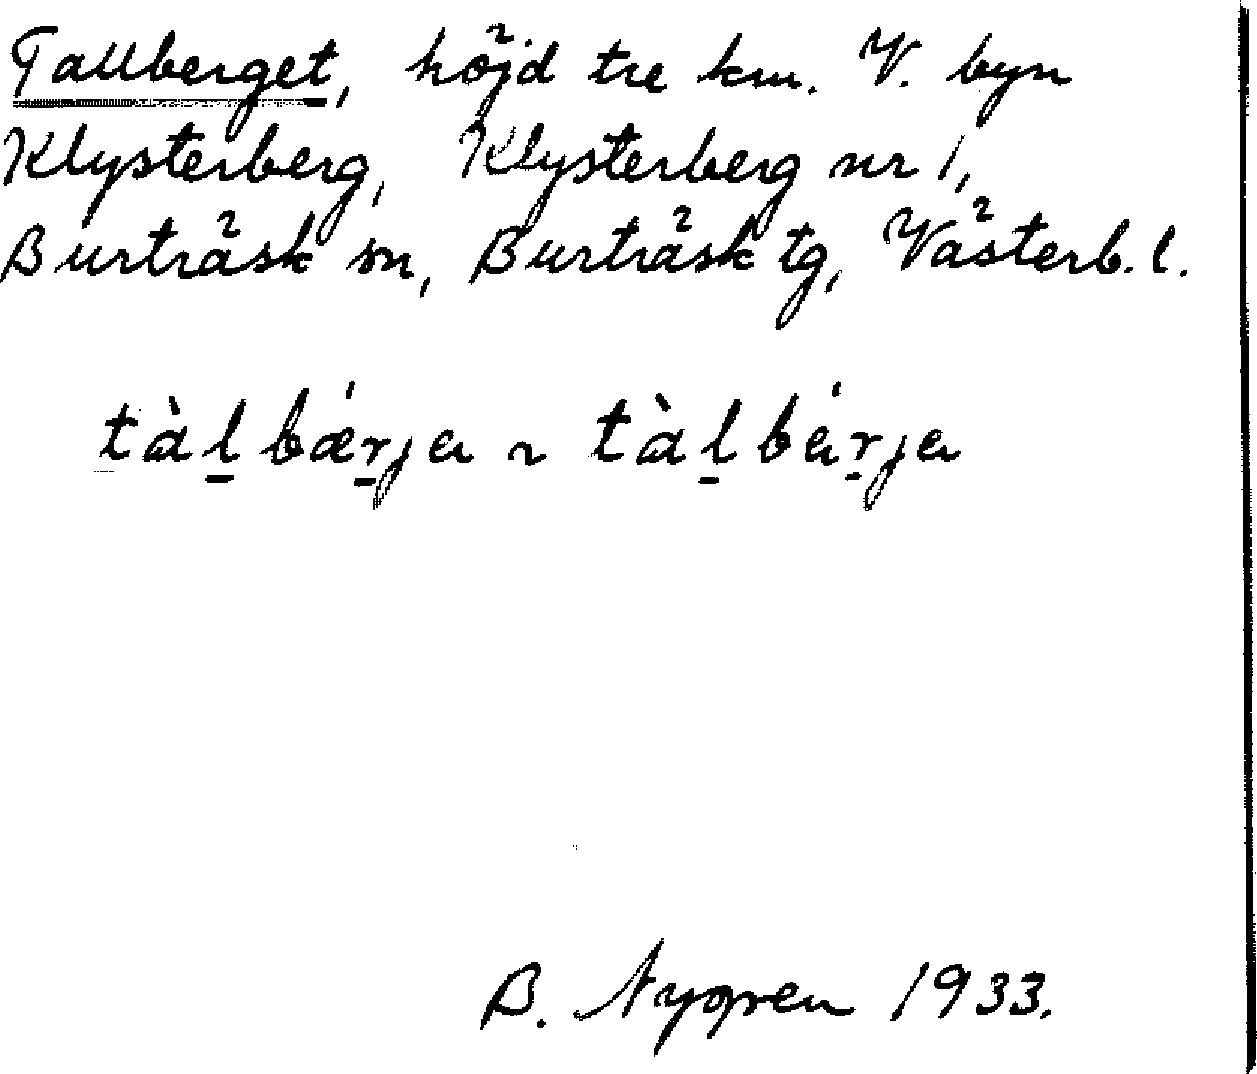 Tallberget, höjd tre km. V. byn
Klysterberg, Klysterberg nr 1,
Burträsk sn, Burträsk tg, Västerb. l.
tàl̠bǽr̠ja ~ tàl̠bár̠ja
B. Nygren 1933.